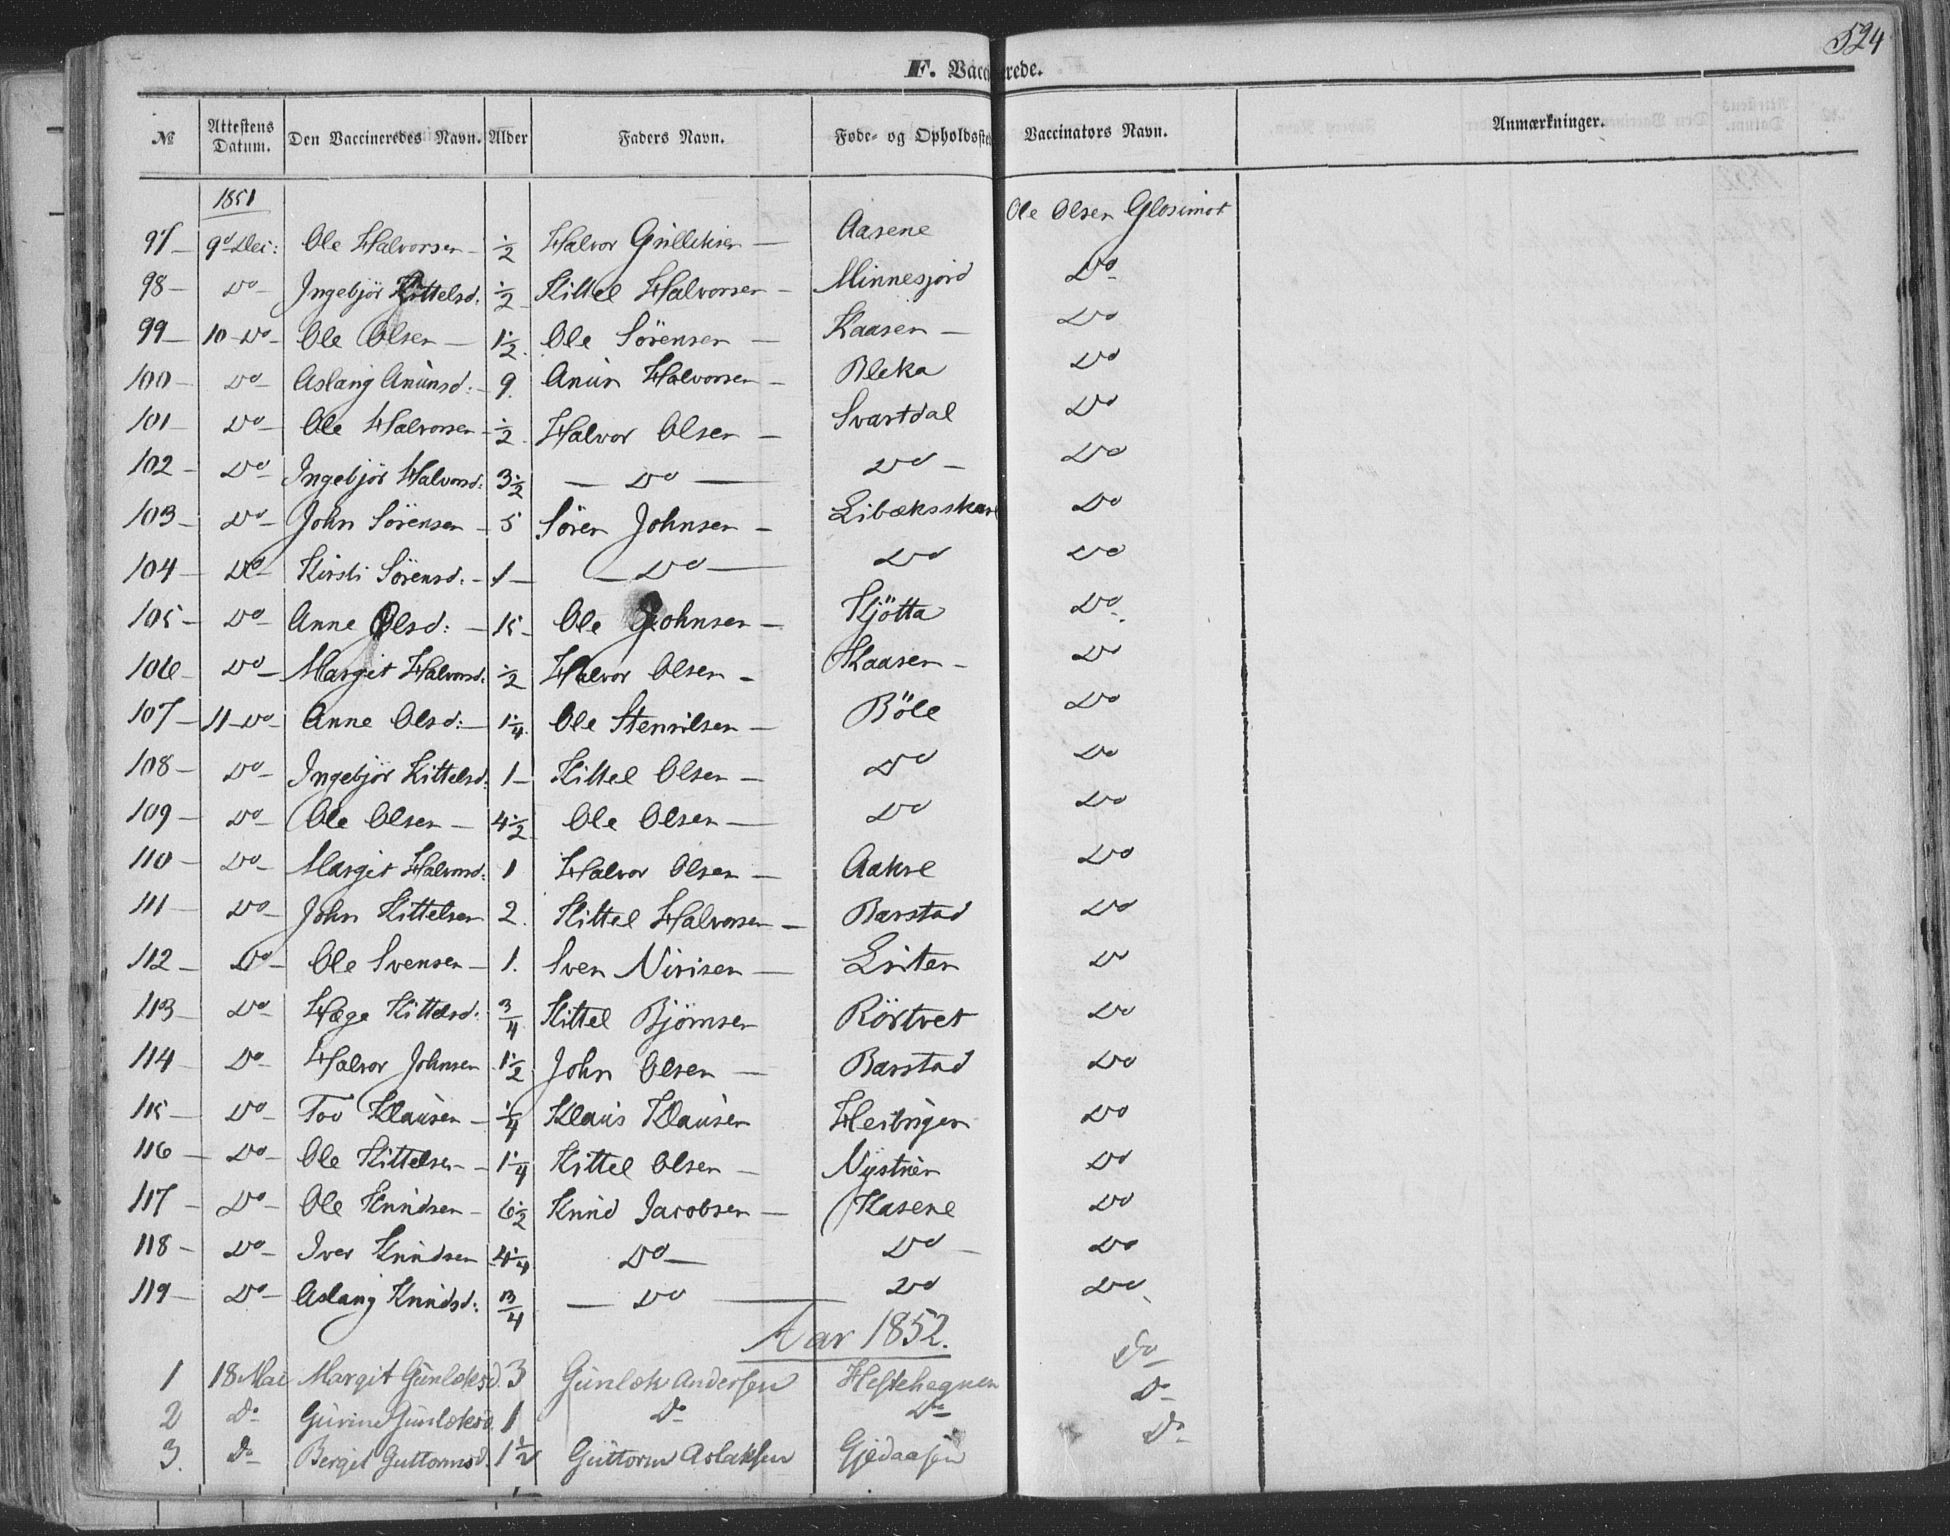 524
F. Vaccinerede.
№ Attestens Datum. Den Vaccineredes Navn. Alder Faders Navn. Føde- og Opholdssted Vaccinators Navn. Anmærkninger.
1851
97 9d Dec: Ole Halvorsen ½ Halvor Gulleksen Aasene Ole Olsen Glosimot
98 Do Ingebjör Kittelsd: ½ Kittel Halvorsen Minnesjord Do
99 10 Do Ole Olsen 1½ Ole Sörensen Kaasen Do
100 Do Aslaug Anunsd: 9 Anun Halvorsen Bleka Do
101 Do Ole Halvorsen ½ Halvor Olsen Svartdal Do
102 Do Ingebjör Halvorsd: 3½ Do Do Do
103 Do John Sörensen 5 Sören Johnsen Libæksskaar Do
104 Do Kirsti Sörensd: 1 Do Do Do
105 Do Anne Olsd: 15 Ole Johnsen Kjötta Do
106 Do Margit Halvorsd: ½ Halvor Olsen Kaasen Do
107 11 Do Anne Olsd: 1¼ Ole Stenulsen Böle Do
108 Do Ingebjör Kittelsd: 1 Kittel Olsen Do Do
109 Do Ole Olsen 4½ Ole Olsen Do Do
110 Do Margit Halvorsd: 1 Halvor Olsen Aakre Do
111 Do John Kittelsen 2. Kittel Halvorsen Barstad Do
112 Do Ole Svensen 1. Sven Nirisen Do
113 Do Hæge Kittelsd: ¾ Kittel Björnsen Rörtvet Do
114 Do Halvor Johnsen 1½ John Olsen Barstad Do
115 Do Tov Klausen ¼ Klaus Klausen Do
116 Do Ole Kittelsen 1¼ Kittel Olsen Nystuen Do
117 Do Ole Knudsen 6½ Knud Jacobsen Kasene Do
118 Do Iver Knudsen 4¼ Do Do Do
119 Do Aslaug Knudsd: ¾ Do Do Do
Aar 1852.
1 18 Mai Margit Gunleksd. 3 Gunlek Andersen Heftehagnen Do
2 Do Gurine Gunleksd. 1 Do Do Do
3. Do Bergit Guttormsd. 1½ Guttorm Aslaksen Gjedaasen